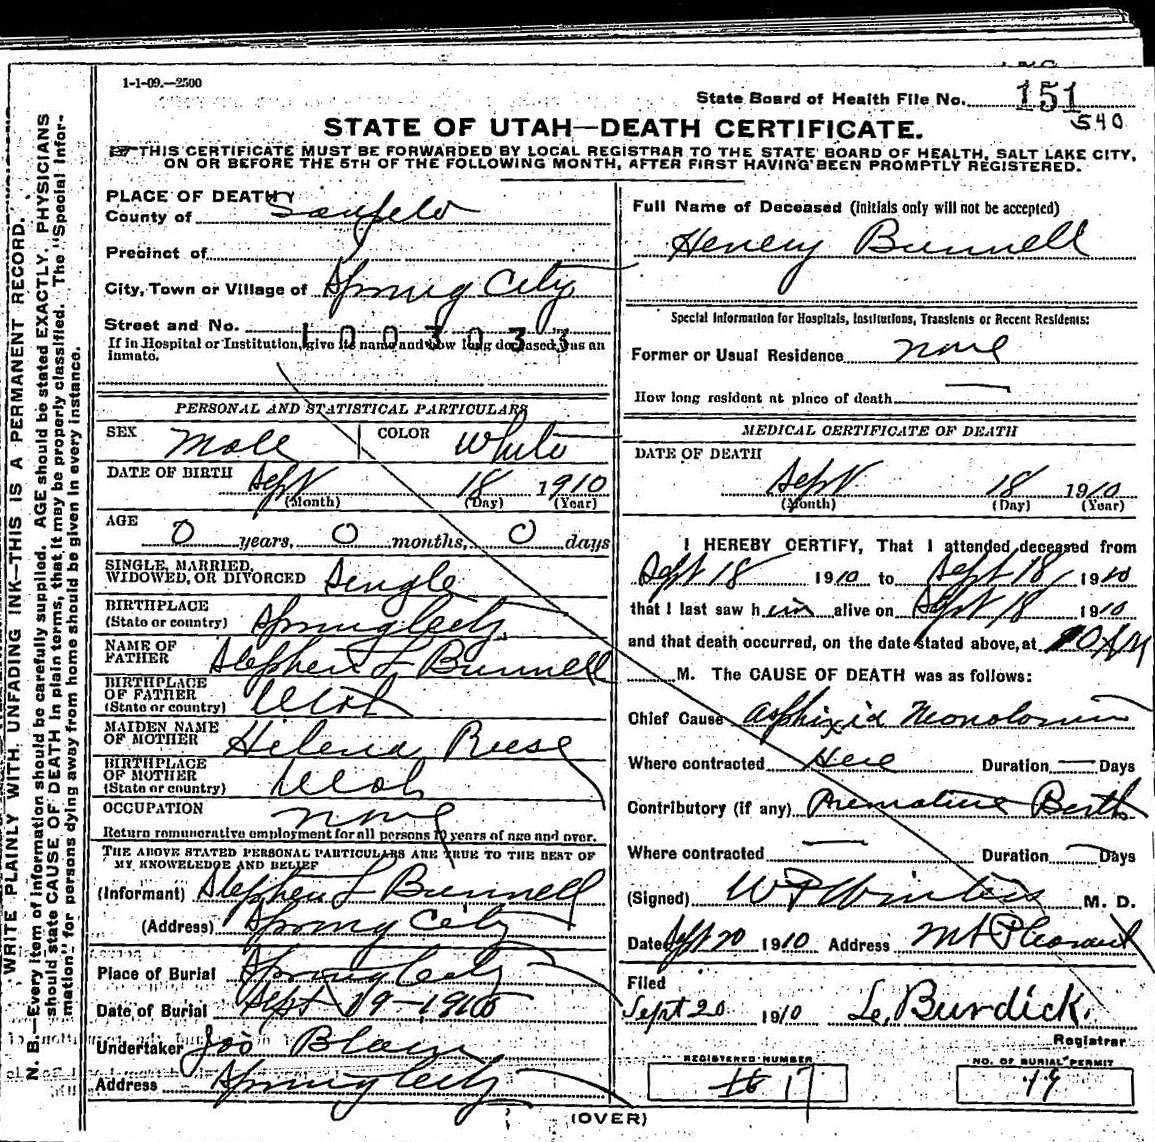 1-1-09.—2500
State Board of Health File No. 151
540
STATE OF UTAH—DEATH CERTIFICATE.
THIS CERTIFICATE MUST BE FORWARDED BY LOCAL REGISTRAR TO THE STATE BOARD OF HEALTH, SALT LAKE CITY,
ON OR BEFORE THE 5TH OF THE FOLLOWING MONTH, AFTER FIRST HAVING BEEN PROMPTLY REGISTERED.
WRITE PLAINLY WITH UNFADING INK—THIS IS A PERMANENT RECORD.
N. B.—Every item of information should be carefully supplied. AGE should be stated EXACTLY. PHYSICIANS
should state CAUSE OF DEATH in plain terms, that it may be properly classified. The "Special Infor-
mation" for persons dying away from home should be given in every instance.
PLACE OF DEATH
County of Sanpete
Precinct of
City, Town or Village of Spring City
Street and No.
1003033
If in Hospital or Institution, give its name and how long deceased was an
inmate.
PERSONAL AND STATISTICAL PARTICULARS
SEX Male COLOR White
DATE OF BIRTH Sept 18 1910
(Month) (Day) (Year)
AGE
0 years, 0 months, 0 days
SINGLE, MARRIED,
WIDOWED, OR DIVORCED Single
BIRTHPLACE
(State or country) Spring City
NAME OF
FATHER Stephen L Bunnell
BIRTHPLACE
OF FATHER
(State or country) Utah
MAIDEN NAME
OF MOTHER Helena Reese
BIRTHPLACE
OF MOTHER
(State or country) Utah
OCCUPATION none
Return remunerative employment for all persons 10 years of age and over.
THE ABOVE STATED PERSONAL PARTICULARS ARE TRUE TO THE BEST OF
MY KNOWELEDGE AND BELIEF
(Informant) Stephen L Bunnell
(Address) Spring City
Place of Burial Spring City
Date of Burial Sept 19-1910
Undertaker Jos Blain
Address Spring City
Full Name of Deceased (initials only will not be accepted)
Henery Bunnell
Special Information for Hospitals, Institutions, Transients or Recent Residents:
Former or Usual Residence none
How long resident at place of death —
MEDICAL CERTIFICATE OF DEATH
DATE OF DEATH
Sept 18 1910
(Month) (Day) (Year)
I HEREBY CERTIFY, That I attended deceased from
Sept 18 1910 to Sept 18 1910
that I last saw him alive on Sept 18 1910
and that death occurred, on the date stated above, at 10 AM
M. The CAUSE OF DEATH was as follows:
Chief Cause Asphixia Neonatorum
Where contracted Here Duration — Days
Contributory (if any) Premature Berth
Where contracted — Duration — Days
(Signed) W P Winters M. D.
Date Sept 20 1910 Address Mt Pleasant
Filed
Sept 20 1910 Burdick.
Registrar
REGISTERED NUMBER
17
NO. OF BURIAL PERMIT
19
(OVER)